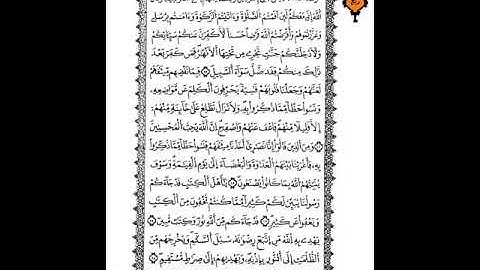 اللَّهُ إِنِّي مَعَكُمْ لَئِنْ أَقَمْتُمُ الصَّلَوٰةَ وَءَاتَيْتُمُ الزَّكَوٰةَ وَءَامَنتُم بِرُسُلِي
وَعَزَّرْتُمُوهُمْ وَأَقْرَضْتُمُ اللَّهَ قَرْضًا حَسَنًا لَّأُكَفِّرَنَّ عَنكُمْ سَيِّـَٔاتِكُمْ
وَلَأُدْخِلَنَّكُمْ جَنَّٰتٍ تَجْرِي مِن تَحْتِهَا الْأَنْهَٰرُ فَمَن كَفَرَ بَعْدَ
ذَٰلِكَ مِنكُمْ فَقَد ضَّلَّ سَوَآءَ السَّبِيلِ فَبِمَا نَقْضِهِم مِّيثَٰقَهُمْ
لَعَنَّٰهُمْ وَجَعَلْنَا قُلُوبَهُمْ قَٰسِيَةً يُحَرِّفُونَ الْكَلِمَ عَن مَّوَاضِعِهِ
وَنَسُوا حَظًّا مِّمَّا ذُكِّرُوا بِهِ وَلَا تَزَالُ تَطَّلِعُ عَلَىٰ خَآئِنَةٍ مِّنْهُمْ
إِلَّا قَلِيلًا مِّنْهُمْ فَاعْفُ عَنْهُمْ وَاصْفَحْ إِنَّ اللَّهَ يُحِبُّ الْمُحْسِنِينَ
وَمِنَ الَّذِينَ قَالُوا إِنَّا نَصَٰرَىٰ أَخَذْنَا مِيثَٰقَهُمْ فَنَسُوا حَظًّا مِّمَّا ذُكِّرُوا
بِهِ فَأَغْرَيْنَا بَيْنَهُمُ الْعَدَاوَةَ وَالْبَغْضَآءَ إِلَىٰ يَوْمِ الْقِيَٰمَةِ وَسَوْفَ
يُنَبِّئُهُمُ اللَّهُ بِمَا كَانُوا يَصْنَعُونَ يَٰٓأَهْلَ الْكِتَٰبِ قَدْ جَآءَكُمْ
رَسُولُنَا يُبَيِّنُ لَكُمْ كَثِيرًا مِّمَّا كُنتُمْ تُخْفُونَ مِنَ الْكِتَٰبِ
وَيَعْفُوا عَن كَثِيرٍ قَدْ جَآءَكُم مِّنَ اللَّهِ نُورٌ وَكِتَٰبٌ مُّبِينٌ
يَهْدِي بِهِ اللَّهُ مَنِ اتَّبَعَ رِضْوَٰنَهُ سُبُلَ السَّلَٰمِ وَيُخْرِجُهُم مِّنَ
الظُّلُمَٰتِ إِلَى النُّورِ بِإِذْنِهِ وَيَهْدِيهِمْ إِلَىٰ صِرَٰطٍ مُّسْتَقِيمٍ